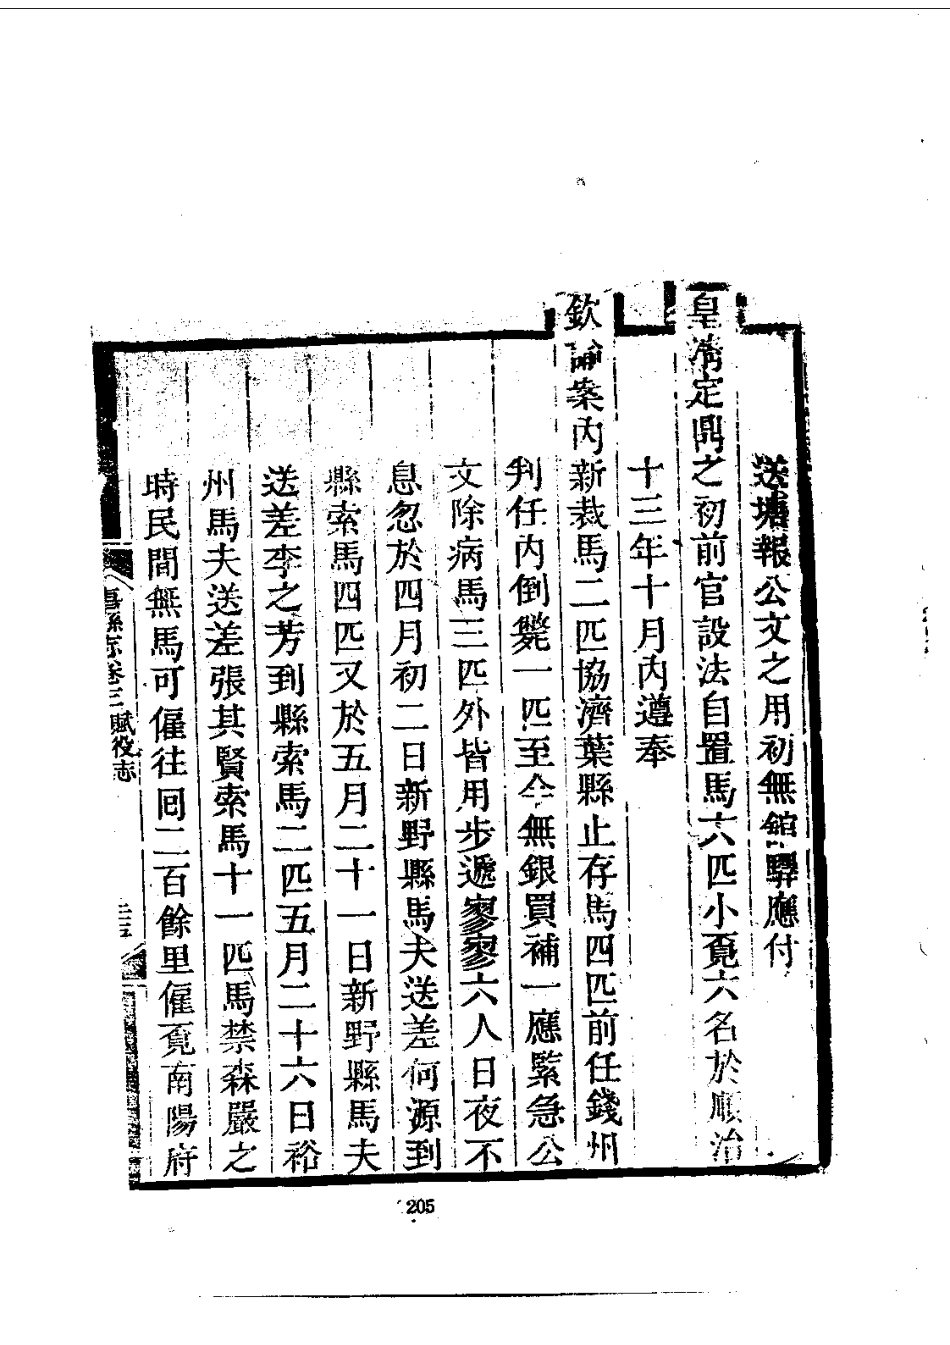 送塘報公文之用初無館驛應付
皇清定鼎之初前官設法自置馬六匹小覔六名於順治
十三年十月內遵奉
欽諭案內新裁馬二匹協濟葉縣止存馬四匹前任錢州
判任內倒斃一匹至今無銀買補一應緊急公
文除病馬三匹外皆用步遞寥寥六人日夜不
息忽於四月初二日新野縣馬夫送差何源到
縣索馬四匹又於五月二十一日新野縣馬夫
送差李之芳到縣索馬二匹五月二十六日裕
州馬夫送差張其賢索馬十一匹馬禁森嚴之
時民間無馬可僱往囘二百餘里僱覔南陽府
縣志卷三賦役志
205